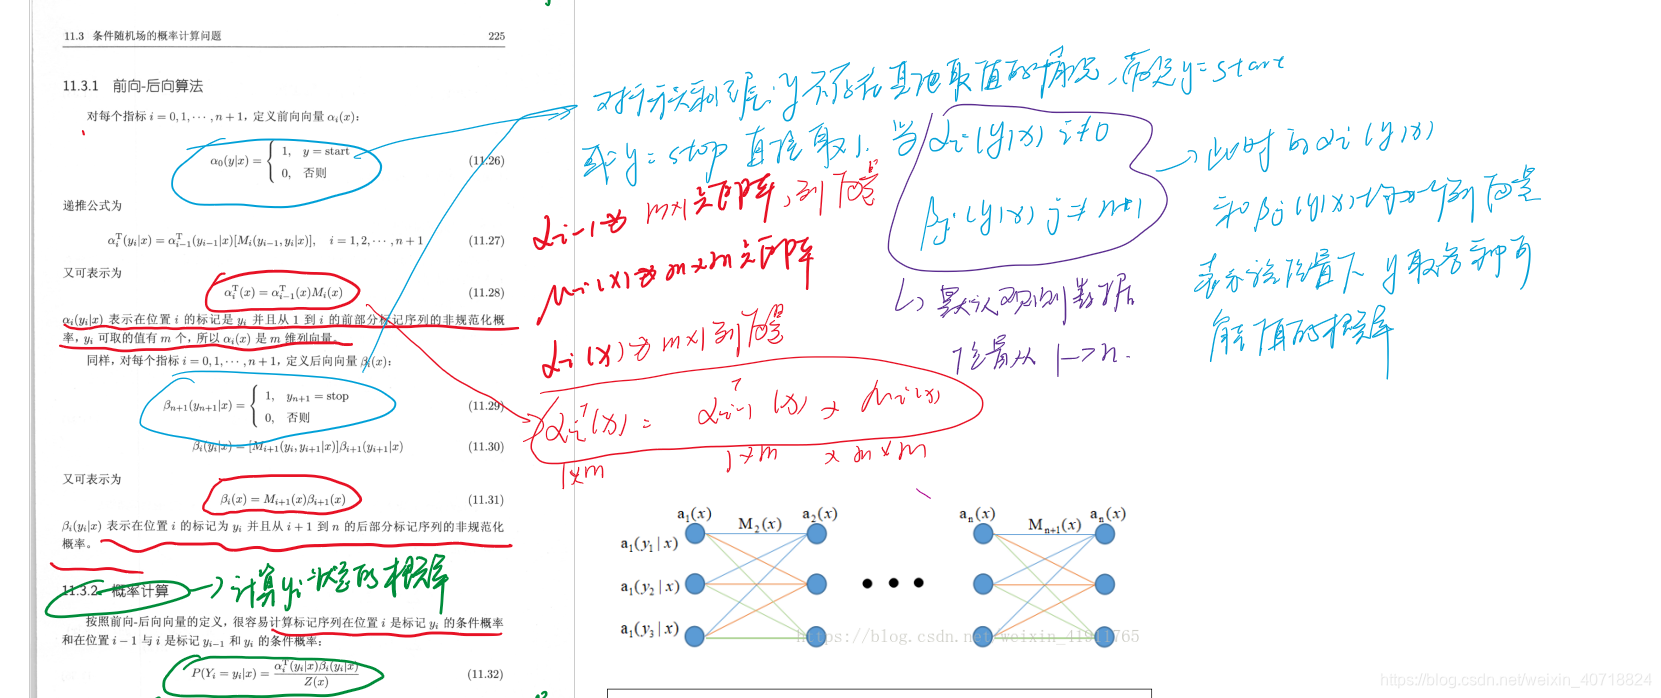 11.3 条件随机场的概率计算问题 225
11.3.1 前向-后向算法
对每个指标 i = 0, 1, ⋯ , n + 1，定义前向向量 αᵢ(x)：
α₀(y|x) = { 1, y = start
0, 否则 (11.26)
递推公式为
αᵢᵀ(yᵢ|x) = αᵢ₋₁ᵀ(yᵢ₋₁|x)[Mᵢ(yᵢ₋₁, yᵢ|x)], i = 1, 2, ⋯ , n + 1 (11.27)
又可表示为
αᵢᵀ(x) = αᵢ₋₁ᵀ(x)Mᵢ(x) (11.28)
αᵢ(yᵢ|x) 表示在位置 i 的标记是 yᵢ 并且从 1 到 i 的前部分标记序列的非规范化概
率，yᵢ 可取的值有 m 个，所以 αᵢ(x) 是 m 维列向量。
同样，对每个指标 i = 0, 1, ⋯ , n + 1，定义后向向量 βᵢ(x)：
βₙ₊₁(yₙ₊₁|x) = { 1, yₙ₊₁ = stop
0, 否则 (11.29)
βᵢ(yᵢ|x) = [Mᵢ₊₁(yᵢ, yᵢ₊₁|x)]βᵢ₊₁(yᵢ₊₁|x) (11.30)
又可表示为
βᵢ(x) = Mᵢ₊₁(x)βᵢ₊₁(x) (11.31)
βᵢ(yᵢ|x) 表示在位置 i 的标记为 yᵢ 并且从 i + 1 到 n 的后部分标记序列的非规范化
概率。
11.3.2 概率计算
计算yᵢ状态的概率
按照前向-后向向量的定义，很容易计算标记序列在位置 i 是标记 yᵢ 的条件概率
和在位置 i − 1 与 i 是标记 yᵢ₋₁ 和 yᵢ 的条件概率：
P(Yᵢ = yᵢ|x) = αᵢᵀ(yᵢ|x)βᵢ(yᵢ|x) / Z(x) (11.32)
对于开头和结尾，y不存在其他取值的情况，y=start
或y=stop 直接取1. 当 αᵢ(y|x) i≠0
βⱼ(y|x) j≠n+1
此时的αᵢ(y|x)
和βⱼ(y|x)均为一个列向量
表示该位置下 y取各种可
能值的概率
默认观测数据
位置从 1->n.
αᵢ₋₁为 m×1矩阵，列向量
Mᵢ(x)为m×m矩阵
αᵢ(x)为 m×1列向量
αᵢᵀ(x) = αᵢ₋₁ᵀ(x) × Mᵢ(x)
1×m 1×m × m×m
a₁(x) M₂(x) a₂(x) aₙ(x) Mₙ₊₁(x) aₙ(x)
a₁(y₁|x)
a₁(y₂|x)
a₁(y₃|x)
https://blog.csdn.net/weixin_41911765
https://blog.csdn.net/weixin_40718824